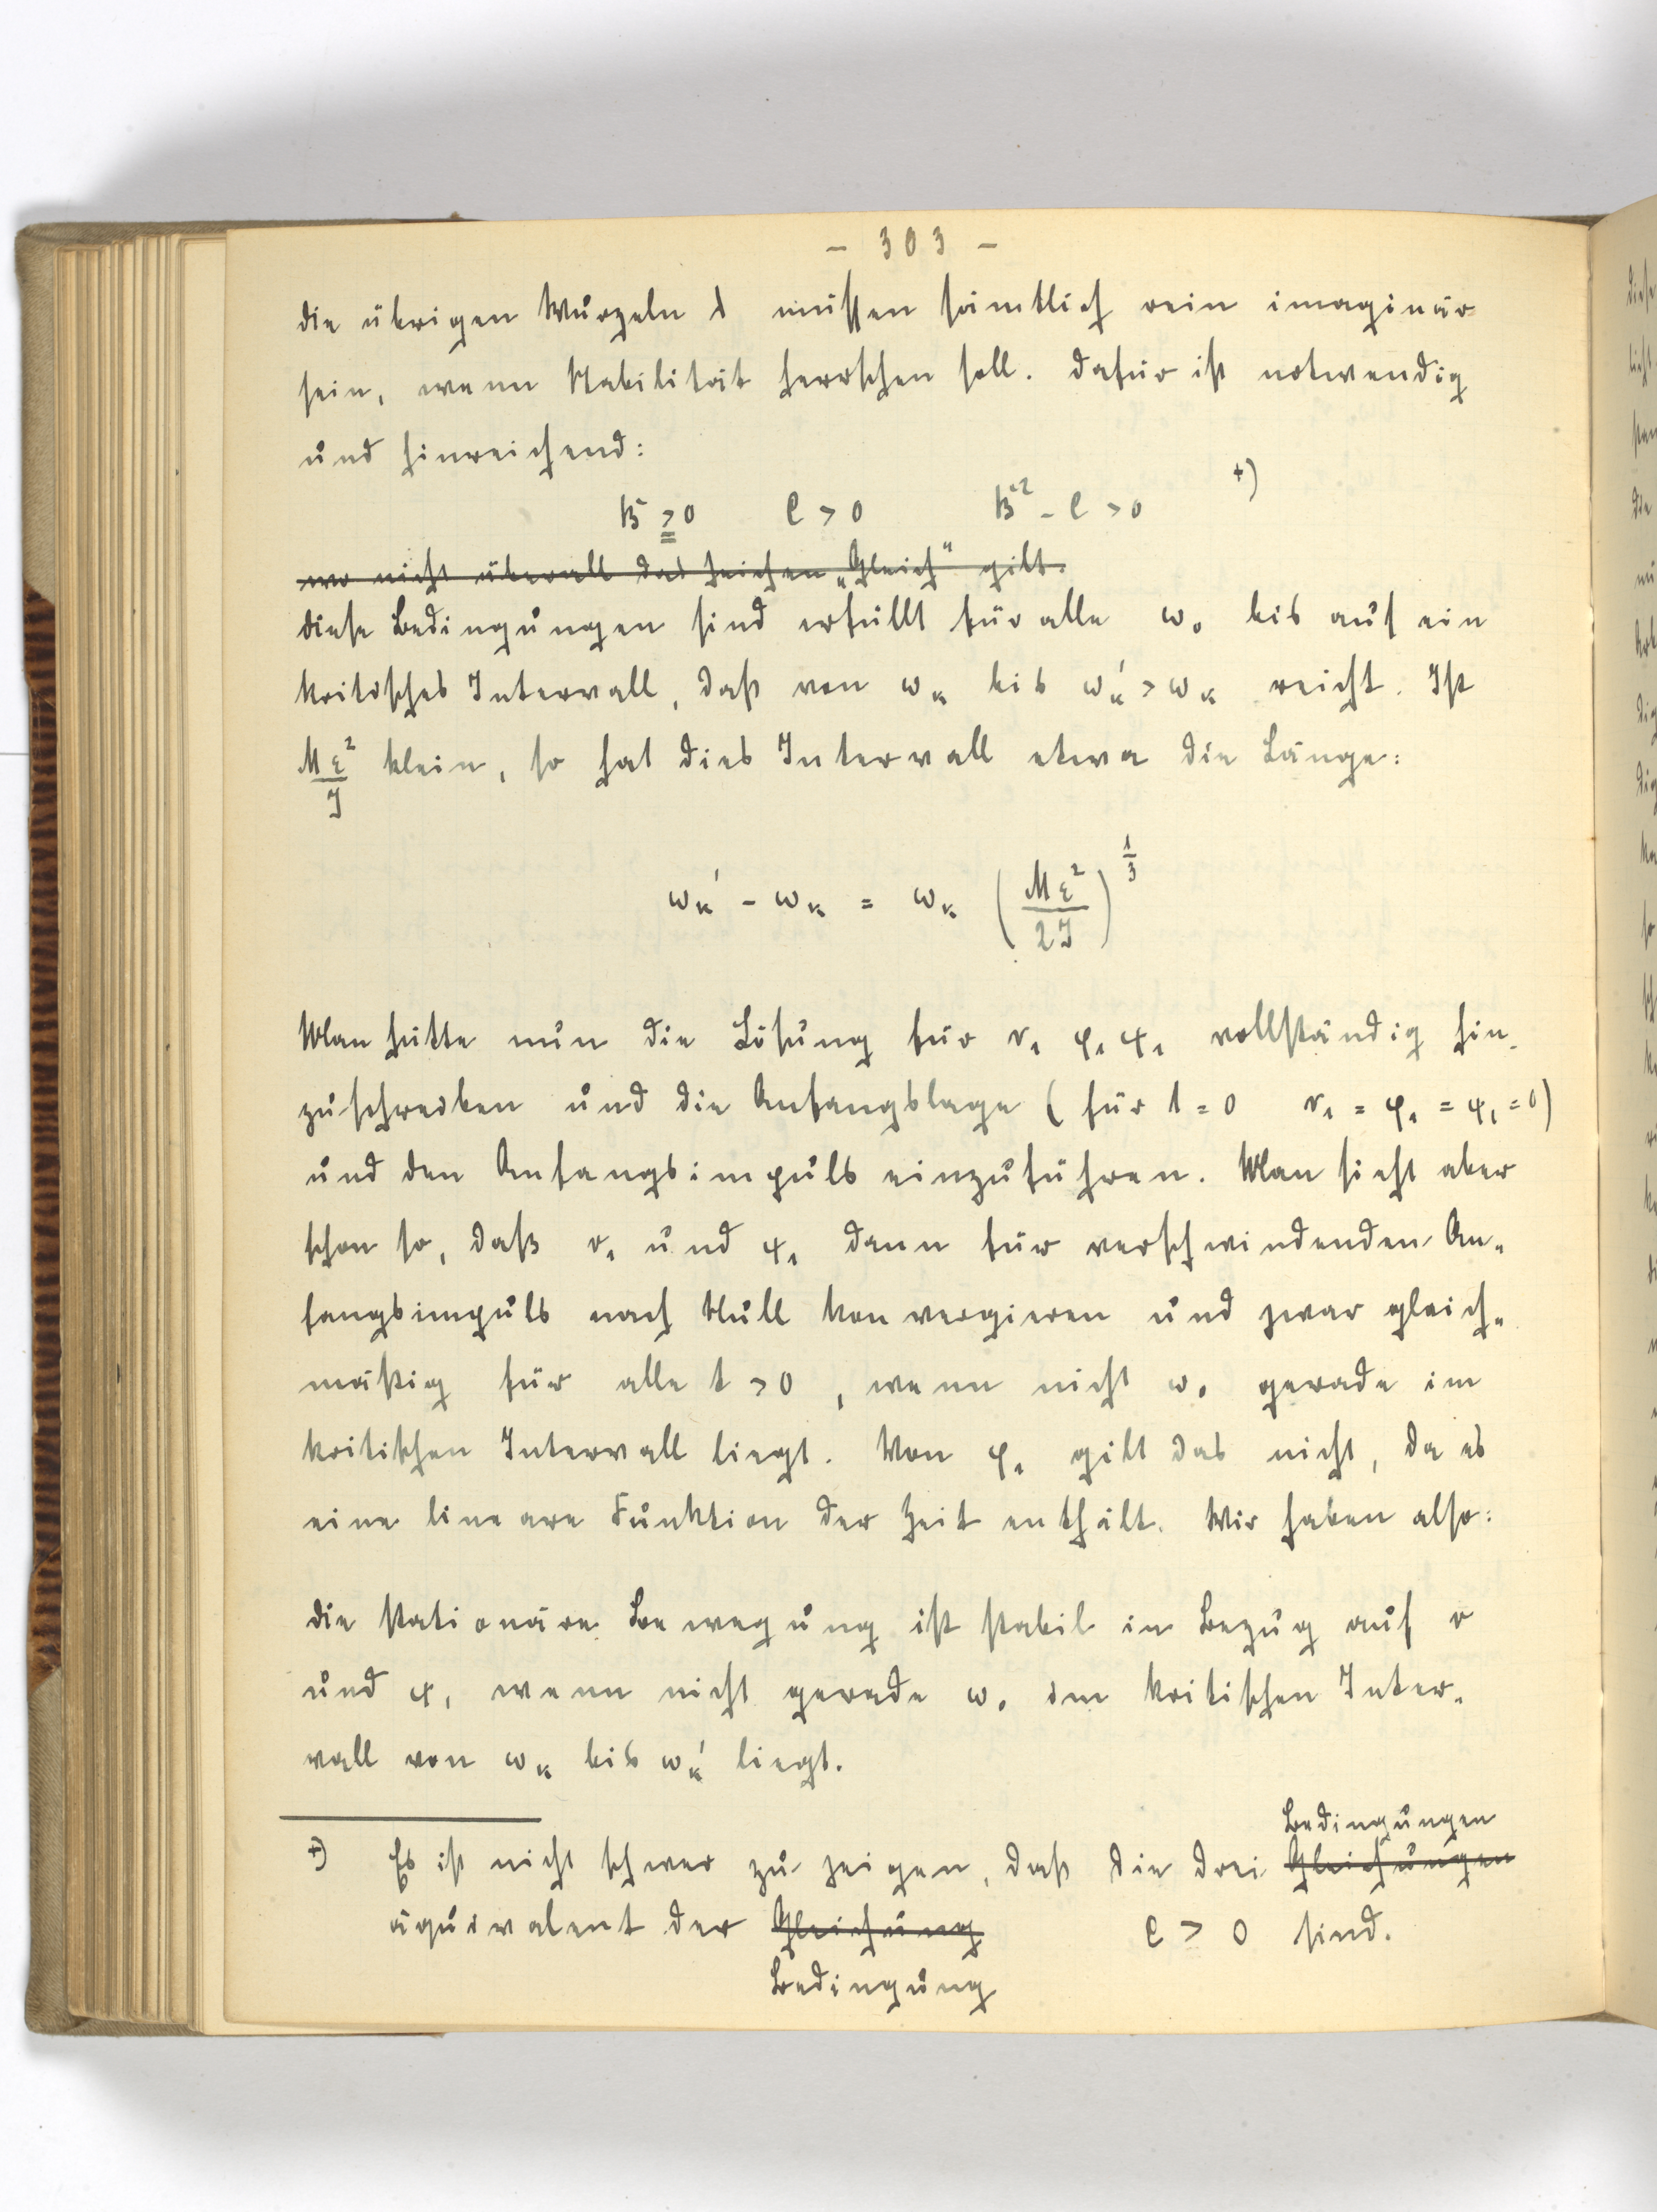 - 303 -
die übrigen Wurzeln λ müssen sämtlich rein imaginär
sein, wenn Stabilität herrschen soll. Dafür ist notwendig
und hinreichend:
B ≧ 0 C > 0 B² - C > 0 +)
wo nicht überall das Zeichen „Gleich“ gilt.
diese Bedingungen sind erfüllt für alle ω₀ bis auf ein
kritisches Intervall, daß von ωₖ bis ωₖ' > ωₖ reicht. Ist
Mε²/J klein, so hat dies Intervall etwa die Länge:
ωₖ' - ωₖ = ωₖ (Mε²/2J)^1/3
Man hätte nun die Lösung für r₁ φ₁ ψ₁ vollständig hin-
zuschreiben und die Anfangslage (für t = 0 r₁ = φ₁ = ψ₁ = 0)
und den Anfangsimpuls einzuführen. Man sieht aber
schon so, daß r₁ und ψ₁ dann für verschwindenden An-
fangsimpuls nach Null konvergieren und zwar gleich-
mäßig für alle t > 0, wenn nicht ω₀ gerade im
kritischen Intervall liegt. Von φ₁ gilt das nicht, da es
eine lineare Funktion der Zeit enthält. Wir haben also:
die stationäre Bewegung ist stabil in Bezug auf r
und ψ, wenn nicht gerade ω₀ im kritischen Inter-
vall von ωₖ bis ωₖ' liegt.
Bedingungen
+) Es ist nicht schwer zu zeigen, daß die drei Gleichungen
äquivalent der Gleichung C > 0 sind.
Bedingung